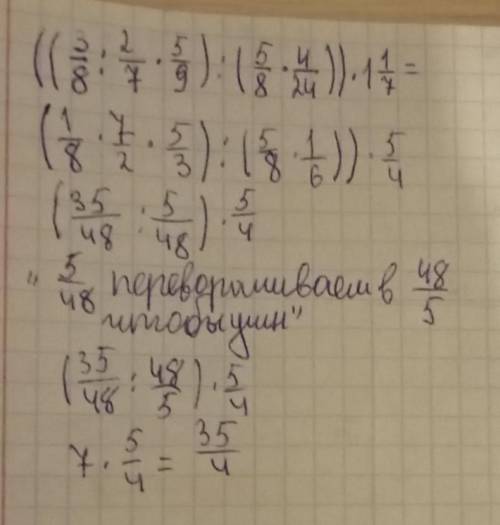 ((3/8 : 2/7 · 5/9) : (5/8 · 4/24)) · 1 1/7 =
(1/8 · 7/2 · 5/3) : (5/8 · 1/6)) · 5/4
(35/48 : 5/48) · 5/4
" 5/48 переворачиваем в 48/5
чтобы умн"
(35/48 : 48/5) · 5/4
7 · 5/4 = 35/4